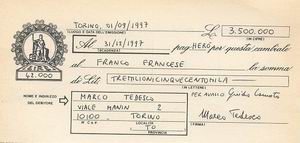 TORINO, 01/09/1997 L. 3.500.000
(LUOGO E DATA DELL'EMISSIONE) (IN CIFRE)
Al 31/12/1997 pagHERÒ per questa cambiale
(SCADENZA)
al FRANCO FRANCESE la somma
42.000
di Lit. TREMILIONICINQUECENTOMILA
(IN LETTERE)
NOME E INDIRIZZO DEL DEBITORE
MARCO TEDESCO PER AVALLO Guido
VIALE MANIN 2
10100 TORINO Marco Tedesco
LOCALITÀ (FIRMA)
TO
PROVINCIA